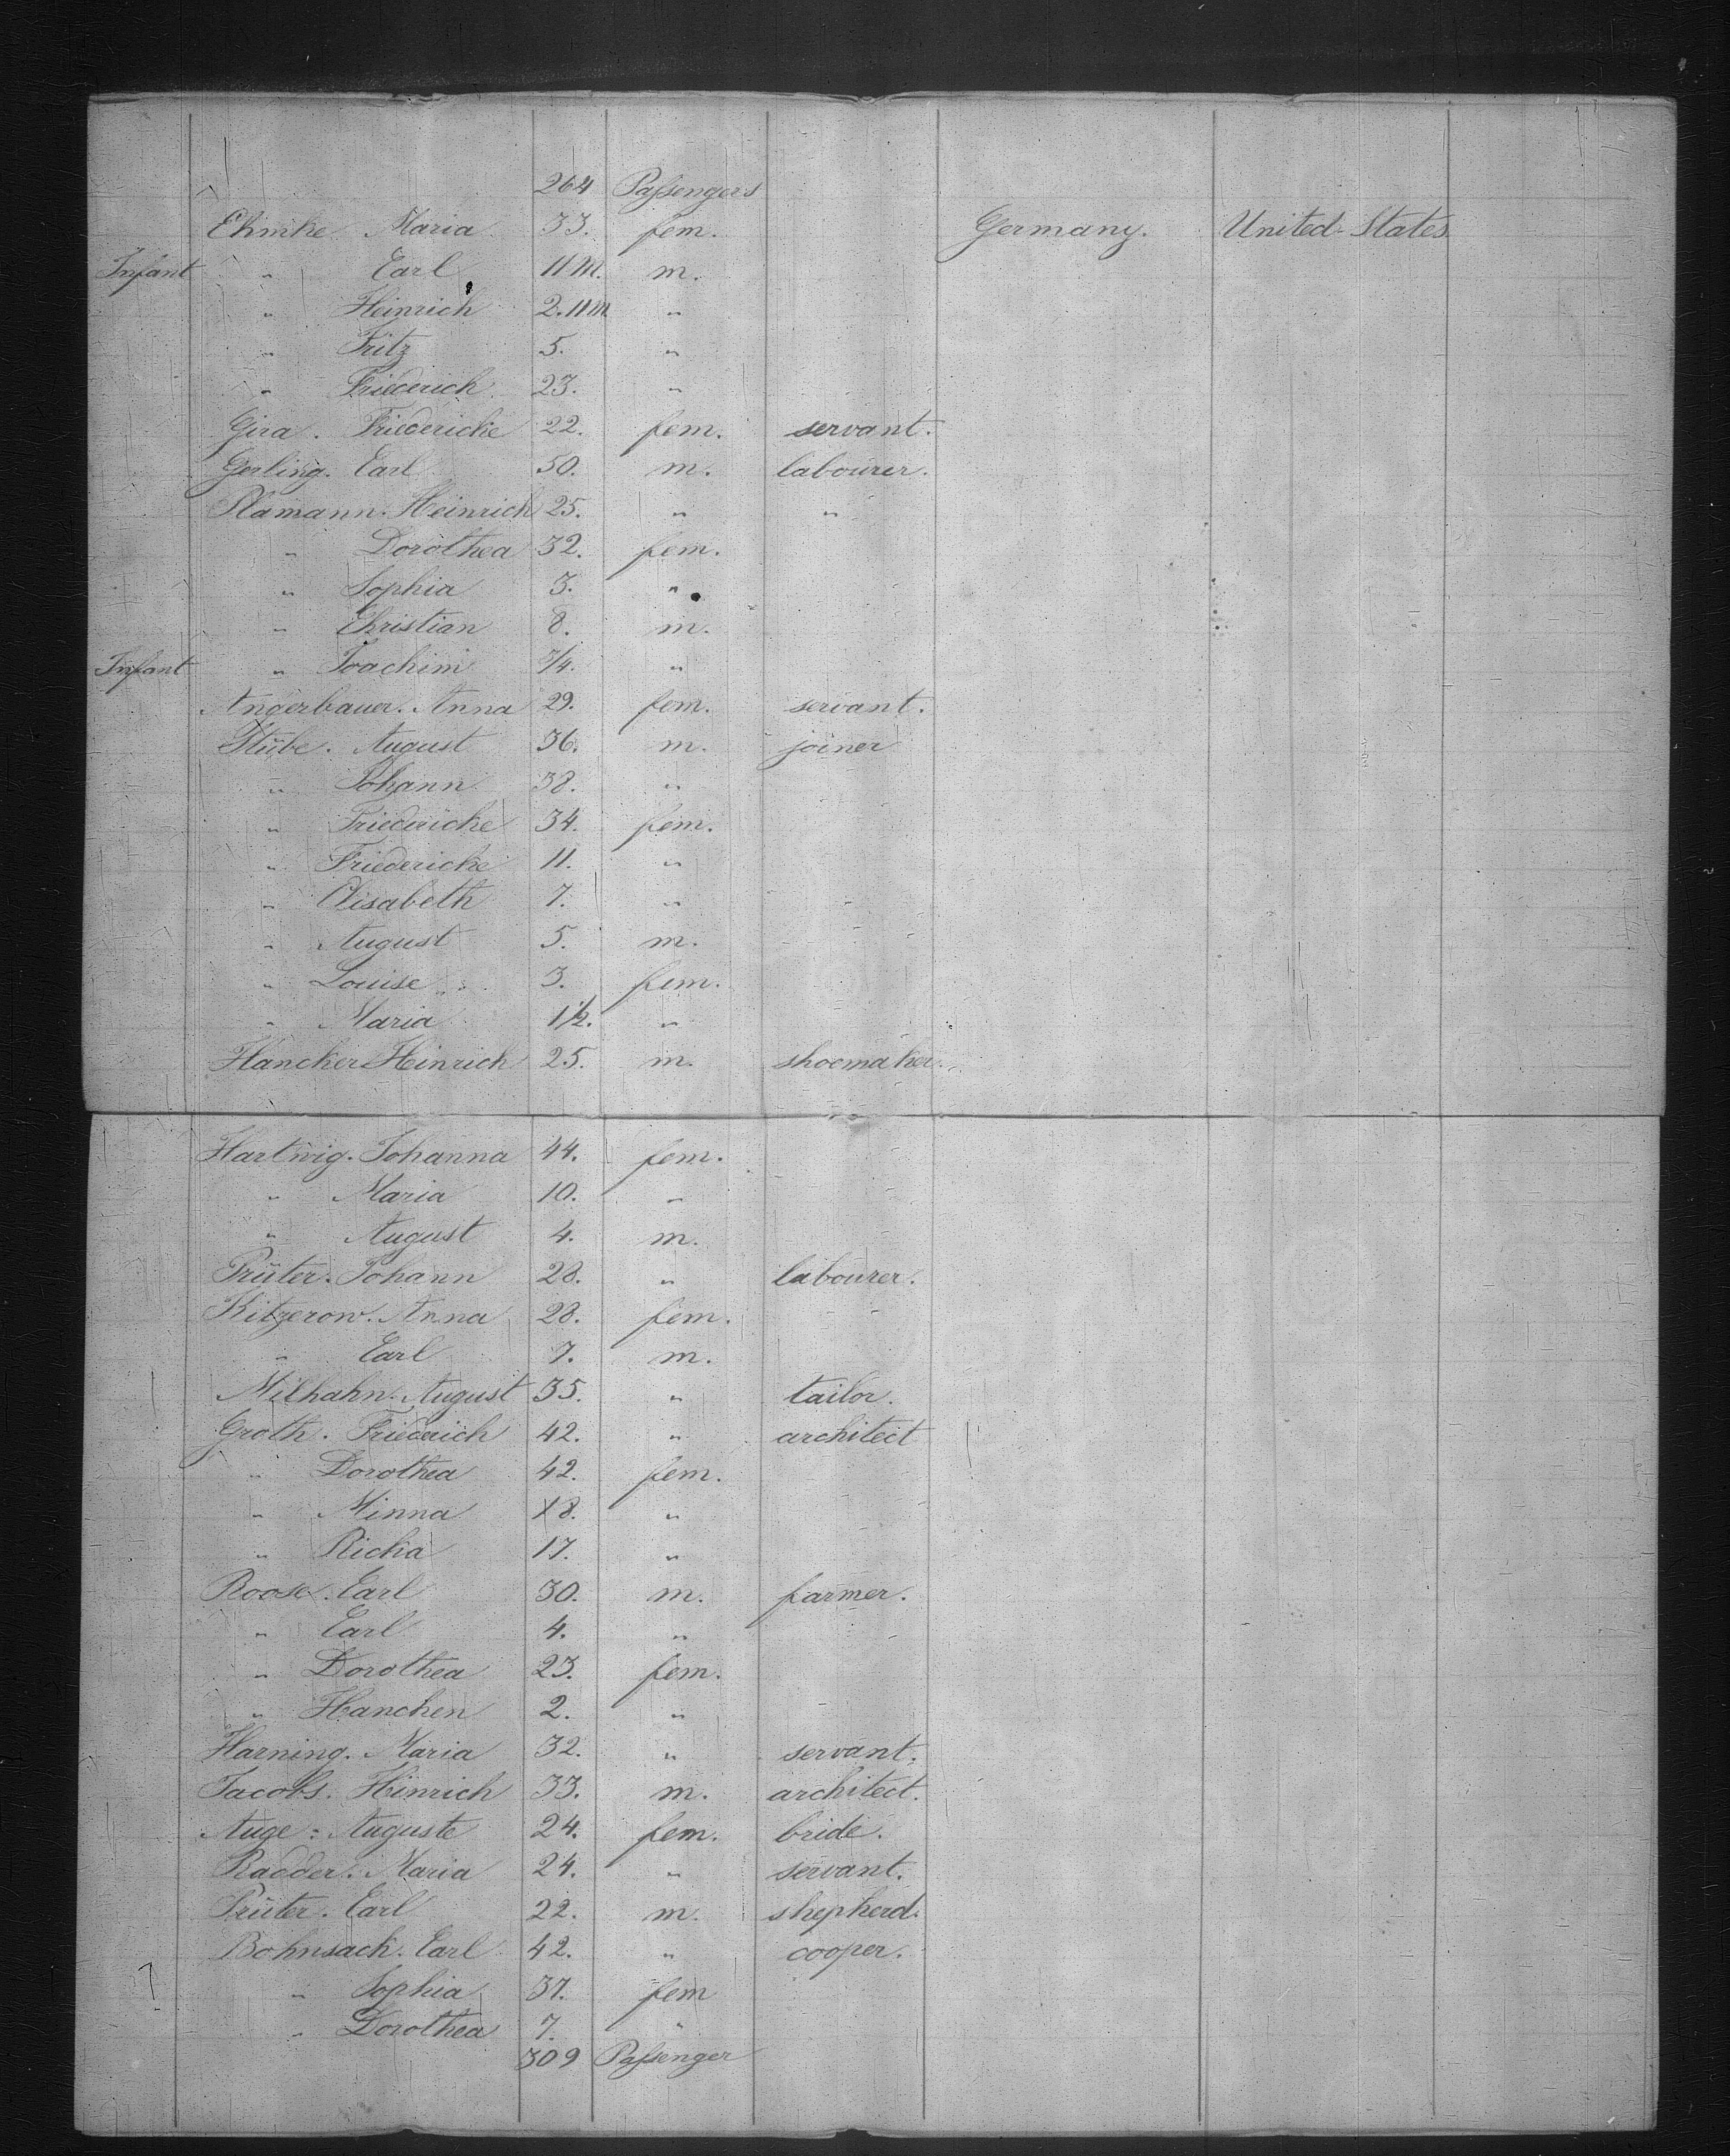 264 Passengers
Ehmke Maria 33. fem. Germany. United-States
Infant " Carl 11 M. m.
" Heinrich 2. 11 M "
" Fritz 5. "
" Friederich 23. "
Gira. Friedericke 22. fem. servant.
Gerling. Carl 50. m. labourer.
Plamann. Heinrich 25. " "
" Dorothea 32. fem.
" Sophia 3. "
" Christian 8. m.
Infant " Joachim 3/4. "
Angerbauer. Anna 29. fem. servant.
Stübe. August 36. m. joiner
" Johann 38. "
" Friedericke 34. fem.
" Friedericke 11. "
" Elisabeth 7. "
" August 5. m.
" Louise 3. fem.
" Maria 1 1/2. "
Hancker Heinrich 25. m. shoemaker.
Hartwig. Johanna 44. fem.
" Maria 10. "
" August 4. m.
Prüter. Johann 28. " labourer.
Kitzerow. Anna 28. fem.
" Carl 7. m.
Milhahn. August 35. " tailor.
Groth. Friederich 42. " architect
" Dorothea 42. fem.
" Minna 18. "
" Richa 17. "
Roose. Carl 30. m. farmer.
" Carl 4. "
" Dorothea 23. fem.
" Hanchen 2. "
Harning. Maria 32. " servant.
Jacobs. Hinrich 33. m. architect.
Auge: Auguste 24. fem. bride.
Radder. Maria 24. " servant.
Prüter. Carl 22. m. shepherd.
Bohnsack. Carl 42. " cooper.
" Sophia 37. fem
" Dorothea 7. "
309 Passenger